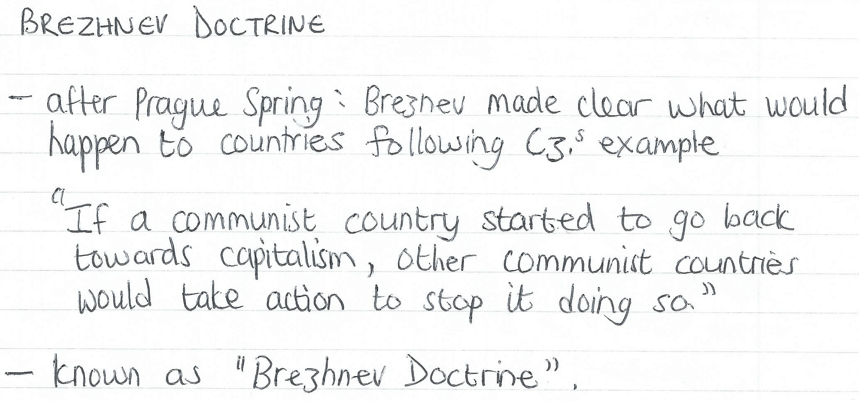 BREZHNEV DOCTRINE
- after Prague Spring: Breznev made clear what would
happen to countries following Cz.'s example
"If a communist country started to go back
towards capitalism, other communist countries
would take action to stop it doing so."
- known as "Brezhnev Doctrine".